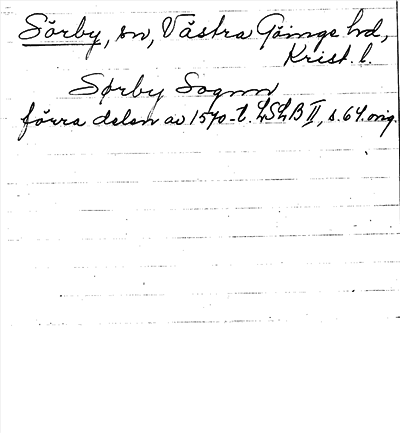 Sörby, sn, Västra Göinge hd,
Krist. l.
Sørby Sogn
förra delen av 1570-t. LSLB II, s. 64. orig.